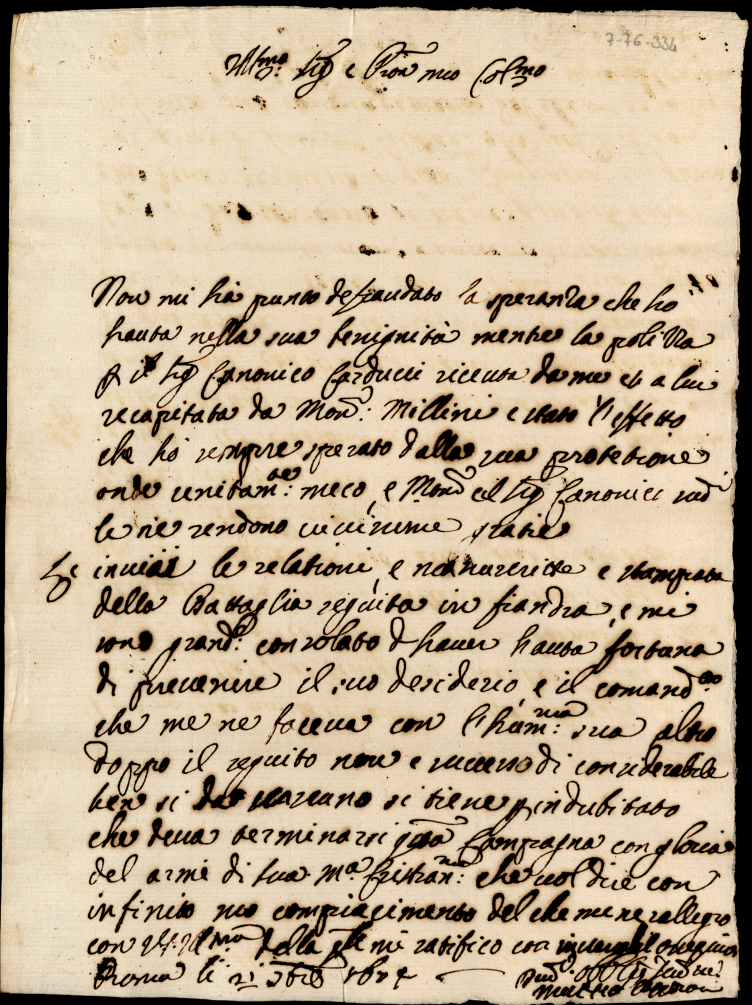 7-76-334
Ill.mo Sig.r e Pron mio Col.mo
Non mi hà punto defraudato la speranza che ho
hauta nella sua benignità mentre la polizza
p il Sig Canonico Carducci riceuta da me et a lui
recapitata da Mon.r Millini e stato l'effetto
che hò sempre sperato dalla sua protetione
onde unitam.te meco, e Mons.r et il Sig Canonico sud.i
le ne rendono viuissime gratie
inuiai le relationi, e manuscritte e stampate
della Battaglia seguita in fiandra, e mi
sono grand. consolato d hauer hauta fortuna
di preuenire il suo desiderio, e il comand.to
che me ne faceua con l'hum.ma sua altro
doppo il seguito non e successo di considerabile
ben si da si tiene p indubitato
che deua terminarsi q.sta Campagna con gloria
del armi di sua M.a Cristian.ma che uol dire con
infinito mio compiacimento del che me ne rallegro
con V.S. Ill.ma della q.le mi ratifico con
Roma li 8bre 1674